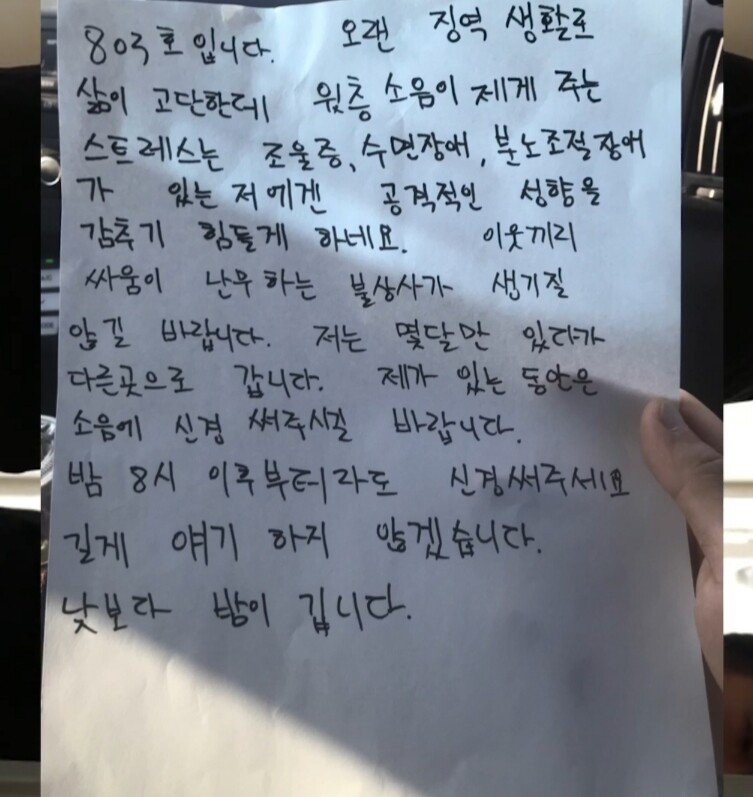 803호입니다. 오랜 징역 생활로
삶이 고단한데 윗층 소음이 제게 주는
스트레스는 조울증, 수면장애, 분노조절장애
가 있는 저에겐 공격적인 성향을
감추기 힘들게 하네요. 이웃끼리
싸움이 난무하는 불상사가 생기질
않길 바랍니다. 저는 몇달만 있다가
다른곳으로 갑니다. 제가 있는 동안은
소음에 신경 써주시길 바랍니다.
밤 8시 이후부터라도 신경써주세요
길게 얘기 하지 않겠습니다.
낮보다 밤이 깁니다.